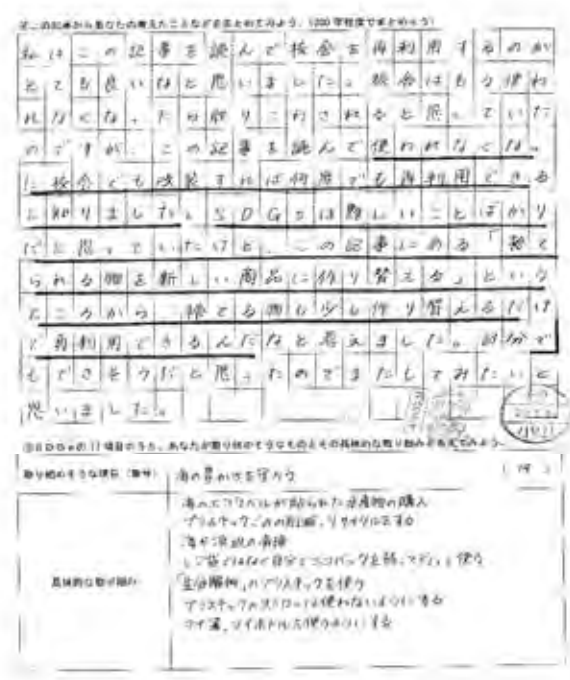 ②この記事からあなたの考えたことなどをまとめてみよう。(200字程度でまとめよう)
私はこの記事を読んで校舎を再利用するのが
とても良いなと思いました。校舎はもう使わ
れなくなったら取りこわされると思っていた
のですが、この記事を読んで使われなくなっ
た校舎でも改装すれば何度でも再利用できる
と知りました。SDGsは難しいことばかり
だと思っていたけど、この記事にある「捨て
られる物を新しい商品に作り替える」という
ところから、捨てる物も少し作り替えるだけ
で再利用できるんだなと考えました。自分で
もできそうだと思ったのでまたしてみたいと
思いました。
③SDGsの17項目のうち、あなたが取り組めそうなものとその具体的な取り組みを考えてみよう。
取り組めそうな項目(番号) 海の豊かさを守ろう (14)
具体的な取り組み
海のエコラベルが貼られた水産物の購入
プラスチックごみの削減、リサイクルをする
海や浜辺の清掃
レジ袋ではなく自分でエコバッグを持っていって使う
「生分解性」のプラスチックを使う
プラスチックのストローは使わないようにする
マイ箸、マイボトルを使うようにする